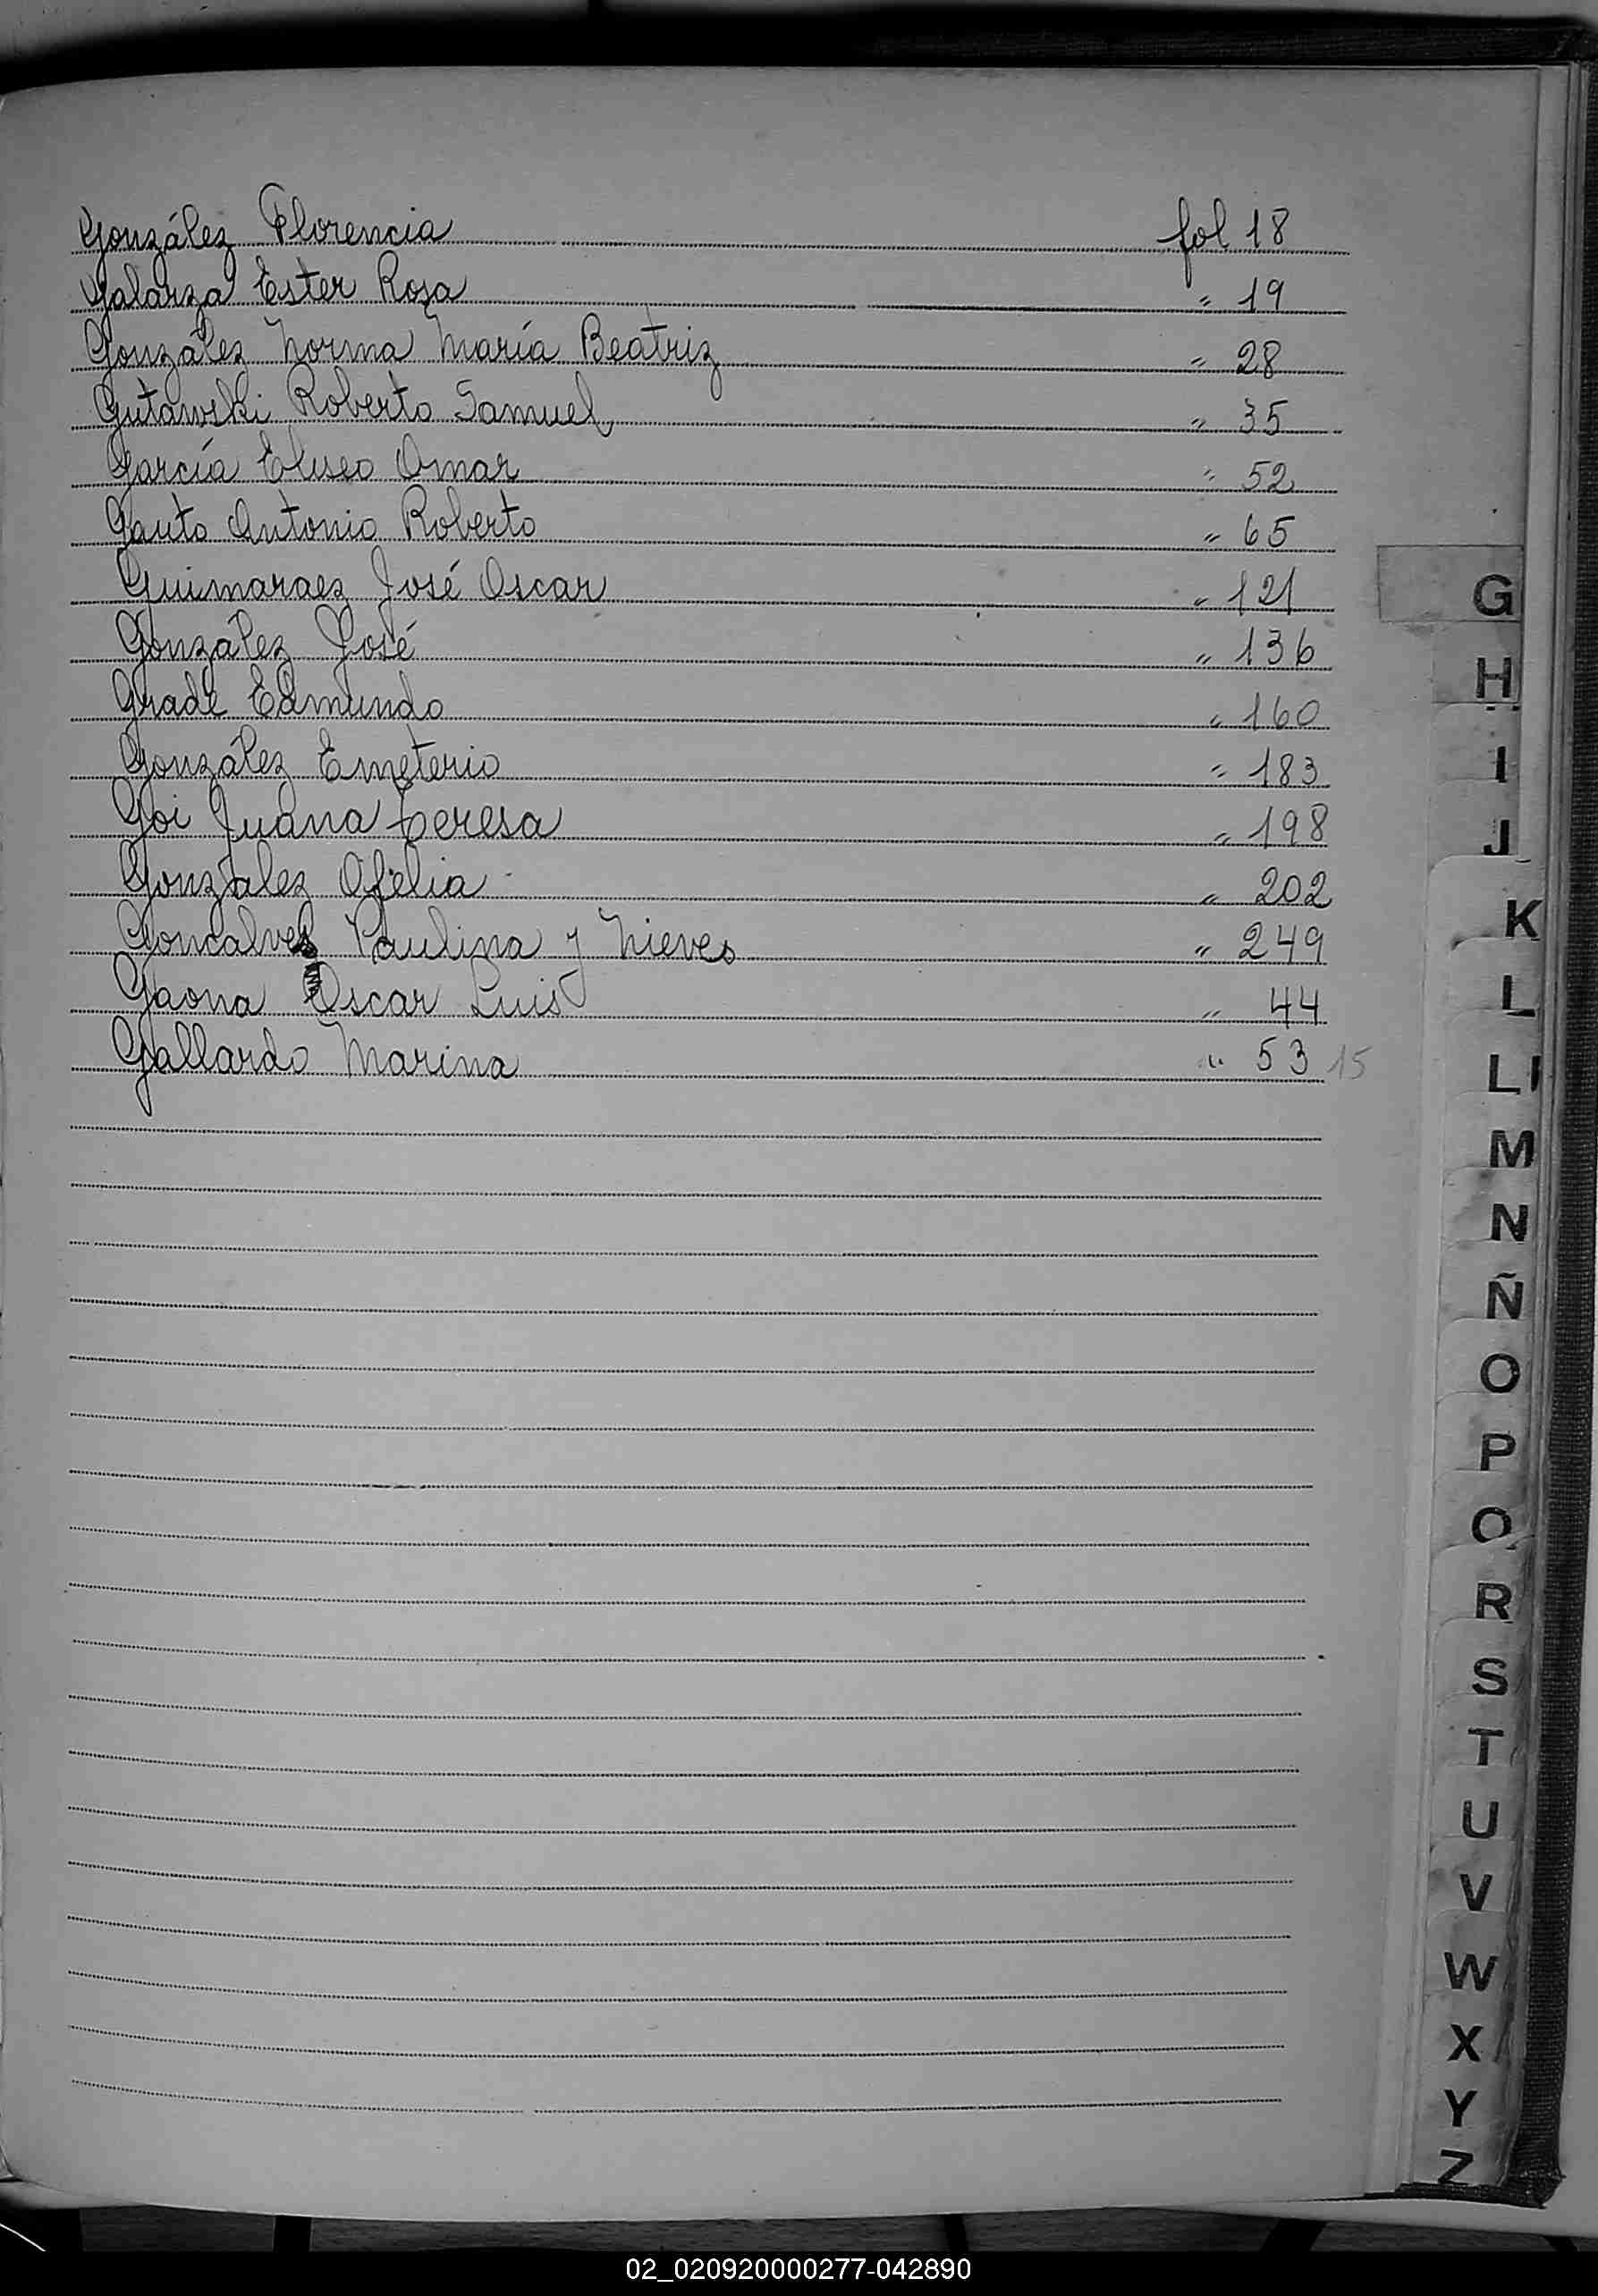 González Florencia fol 18
Galarza Ester Rosa " 19
González Norma María Beatriz " 28
Gutawski Roberto Samuel " 35
García Eliseo Omar " 52
Gauto Antonio Roberto " 65
Guimaraez José Oscar " 121
González José " 136
Gradé Edmundo " 160
González Emeterio " 183
Goi Juana Teresa " 198
González Ofelia " 202
Goncalves Paulina y Nieves " 249
Gaona Oscar Luis " 44
Gallardo Marina " 53 15
G
H
I
J
K
L
Ll
M
N
Ñ
O
P
Q
R
S
T
U
V
W
X
Y
Z
02_020920000277-042890